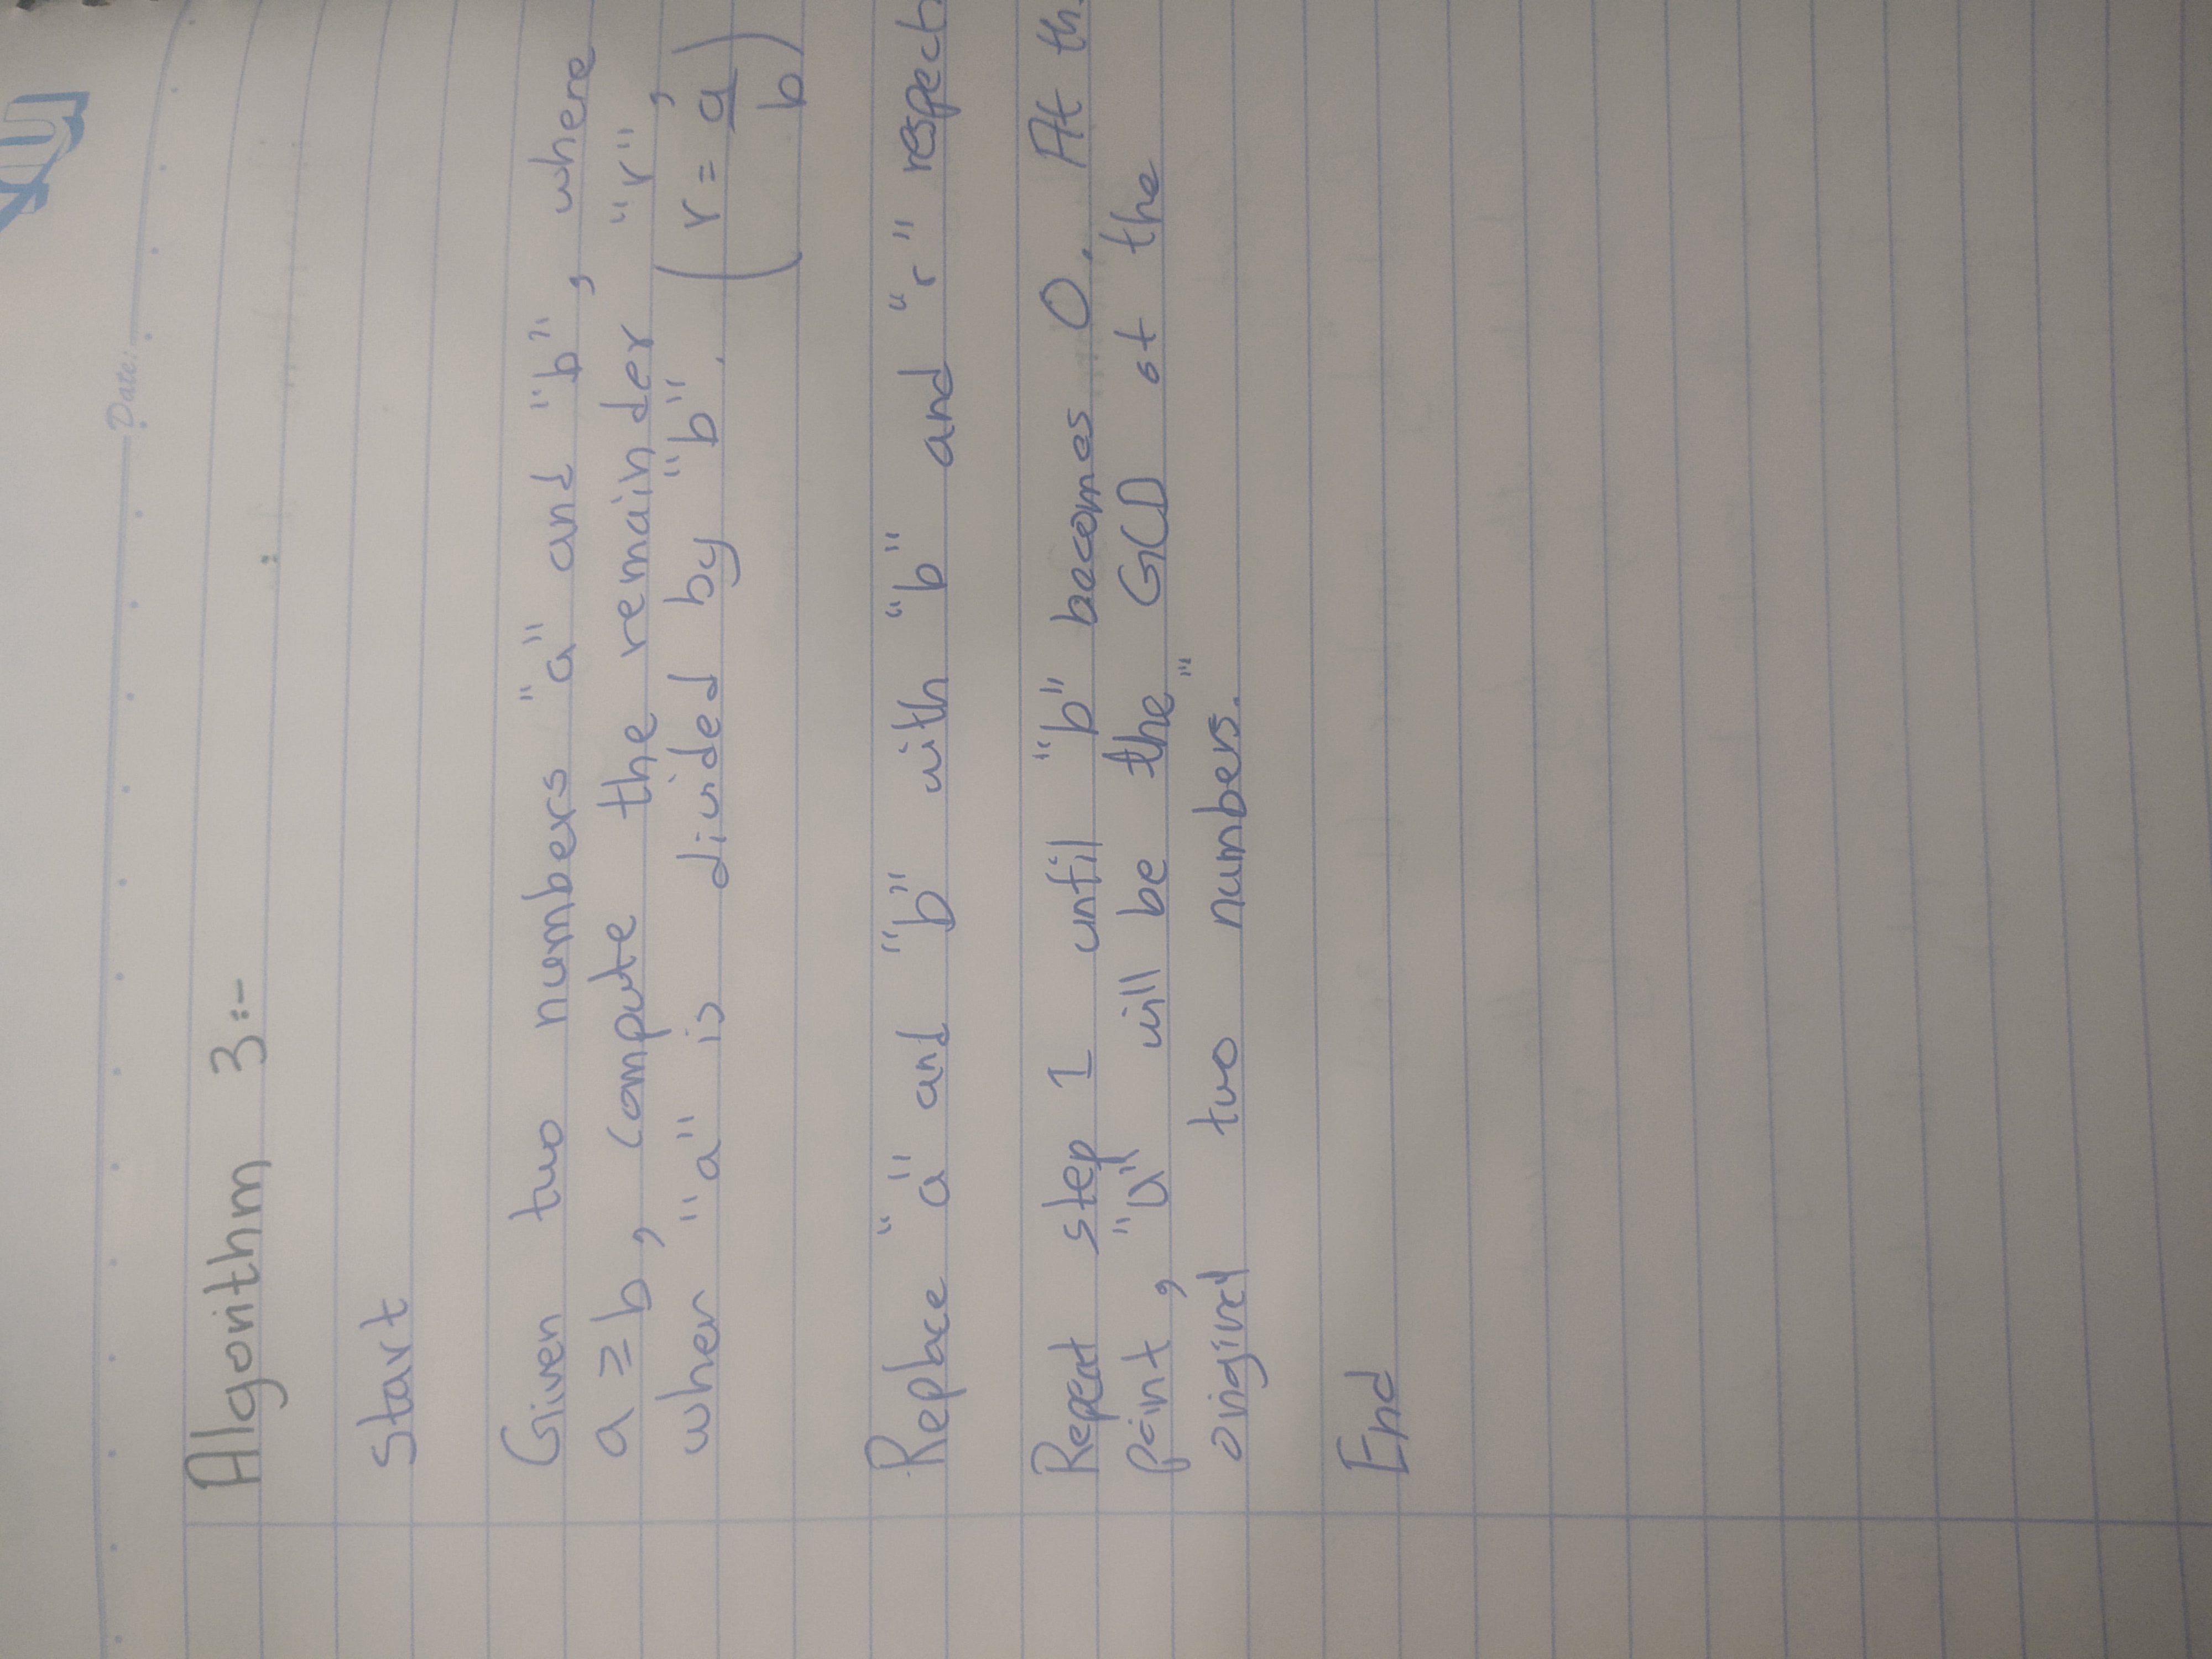 Date:
Algorithm 3:-
Start
Given two numbers "a" and "b", where
a ≥ b, compute the remainder "r",
when "a" is divided by "b". (r = a/b)
Replace "a" and "b" with "b" and "r" respect
Repeat step 1 until "b" becomes 0. At th
point, "a" will be the GCD of the
original two numbers."
End